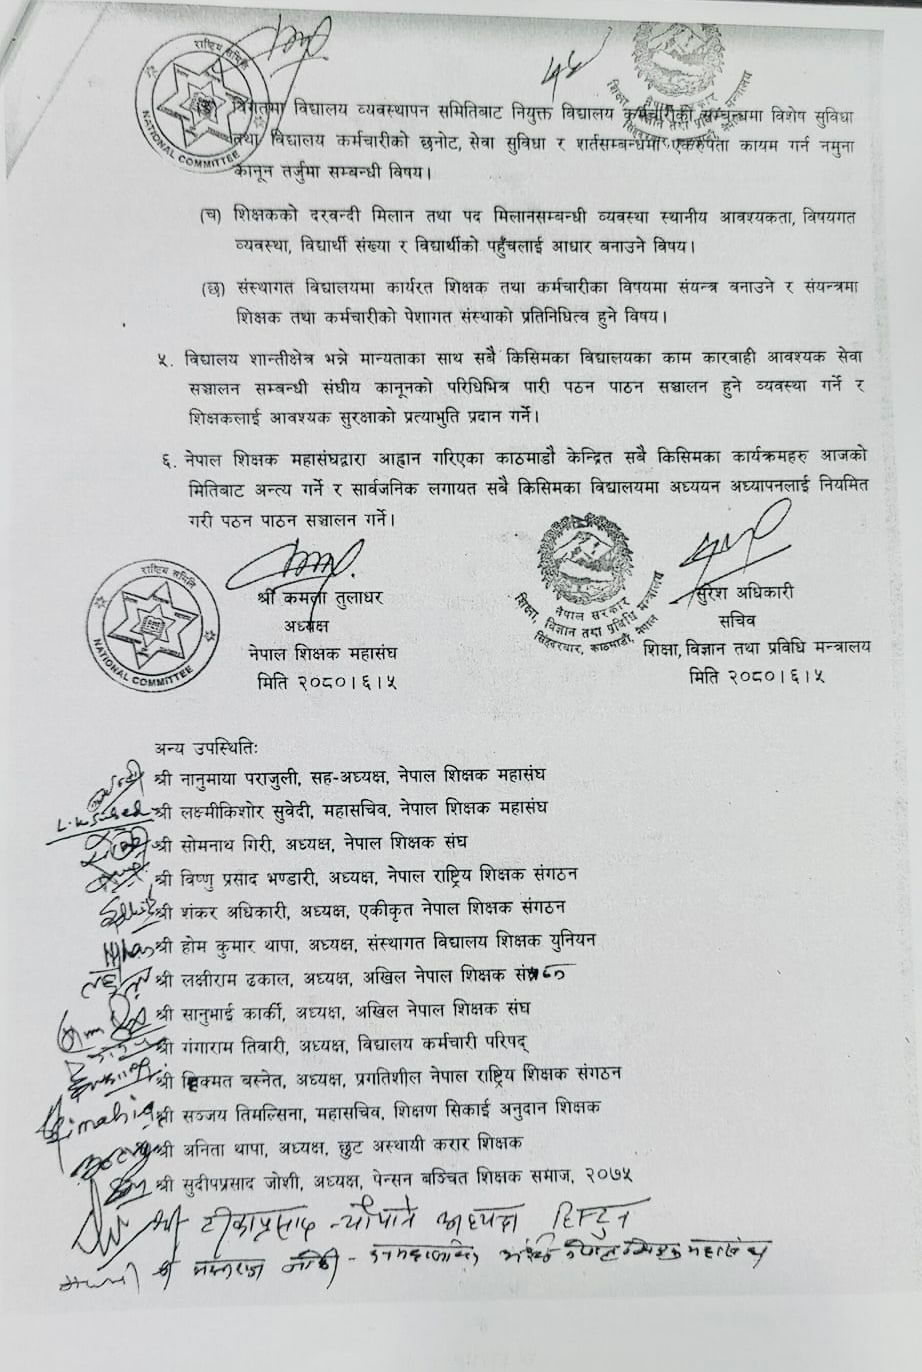 राष्ट्रिय समिति
NATIONAL COMMITTEE
विगतमा विद्यालय व्यवस्थापन समितिबाट नियुक्त विद्यालय कर्मचारीको सम्बन्धमा विशेष सुविधा
तथा विद्यालय कर्मचारीको छनोट, सेवा सुविधा र शर्तसम्बन्धमा एकरुपता कायम गर्न नमुना
कानून तर्जुमा सम्बन्धी विषय।
(च) शिक्षकको दरवन्दी मिलान तथा पद मिलानसम्बन्धी व्यवस्था स्थानीय आवश्यकता, विषयगत
व्यवस्था, विद्यार्थी संख्या र विद्यार्थीको पहुँचलाई आधार बनाउने विषय।
(छ) संस्थागत विद्यालयमा कार्यरत शिक्षक तथा कर्मचारीका विषयमा संयन्त्र बनाउने र संयन्त्रमा
शिक्षक तथा कर्मचारीको पेशागत संस्थाको प्रतिनिधित्व हुने विषय।
५. विद्यालय शान्तीक्षेत्र भन्ने मान्यताका साथ सबै किसिमका विद्यालयका काम कारवाही आवश्यक सेवा
सञ्चालन सम्बन्धी संघीय कानूनको परिधिभित्र पारी पठन पाठन सञ्चालन हुने व्यवस्था गर्ने र
शिक्षकलाई आवश्यक सुरक्षाको प्रत्याभुति प्रदान गर्ने।
६. नेपाल शिक्षक महासंघद्वारा आह्वान गरिएका काठमाडौं केन्द्रित सबै किसिमका कार्यक्रमहरु आजको
मितिबाट अन्त्य गर्ने र सार्वजनिक लगायत सबै किसिमका विद्यालयमा अध्ययन अध्यापनलाई नियमित
गरी पठन पाठन सञ्चालन गर्ने।
राष्ट्रिय समिति
NATIONAL COMMITTEE
श्री कमला तुलाधर
अध्यक्ष
नेपाल शिक्षक महासंघ
मिति २०८०।६।५
नेपाल सरकार
शिक्षा, विज्ञान तथा प्रविधि मन्त्रालय
सिंहदरवार, काठमाडौं, नेपाल
सुरेश अधिकारी
सचिव
शिक्षा, विज्ञान तथा प्रविधि मन्त्रालय
मिति २०८०।६।५
अन्य उपस्थितिः
श्री नानुमाया पराजुली, सह-अध्यक्ष, नेपाल शिक्षक महासंघ
श्री लक्ष्मीकिशोर सुवेदी, महासचिव, नेपाल शिक्षक महासंघ
श्री सोमनाथ गिरी, अध्यक्ष, नेपाल शिक्षक संघ
श्री विष्णु प्रसाद भण्डारी, अध्यक्ष, नेपाल राष्ट्रिय शिक्षक संगठन
श्री शंकर अधिकारी, अध्यक्ष, एकीकृत नेपाल शिक्षक संगठन
श्री होम कुमार थापा, अध्यक्ष, संस्थागत विद्यालय शिक्षक युनियन
श्री लक्षीराम ढकाल, अध्यक्ष, अखिल नेपाल शिक्षक
श्री सानुभाई कार्की, अध्यक्ष, अखिल नेपाल शिक्षक संघ
श्री गंगाराम तिवारी, अध्यक्ष, विद्यालय कर्मचारी परिषद्
श्री हिक्मत बस्नेत, अध्यक्ष, प्रगतिशील नेपाल राष्ट्रिय शिक्षक संगठन
श्री सञ्जय तिमल्सिना, महासचिव, शिक्षण सिकाई अनुदान शिक्षक
श्री अनिता थापा, अध्यक्ष, छुट अस्थायी करार शिक्षक
श्री सुदीपप्रसाद जोशी, अध्यक्ष, पेन्सन बञ्चित शिक्षक समाज, २०७५
श्री टीकाप्रसाद न्यौपाने अध्यक्ष
श्री नेपाल शिक्षक महासंघ